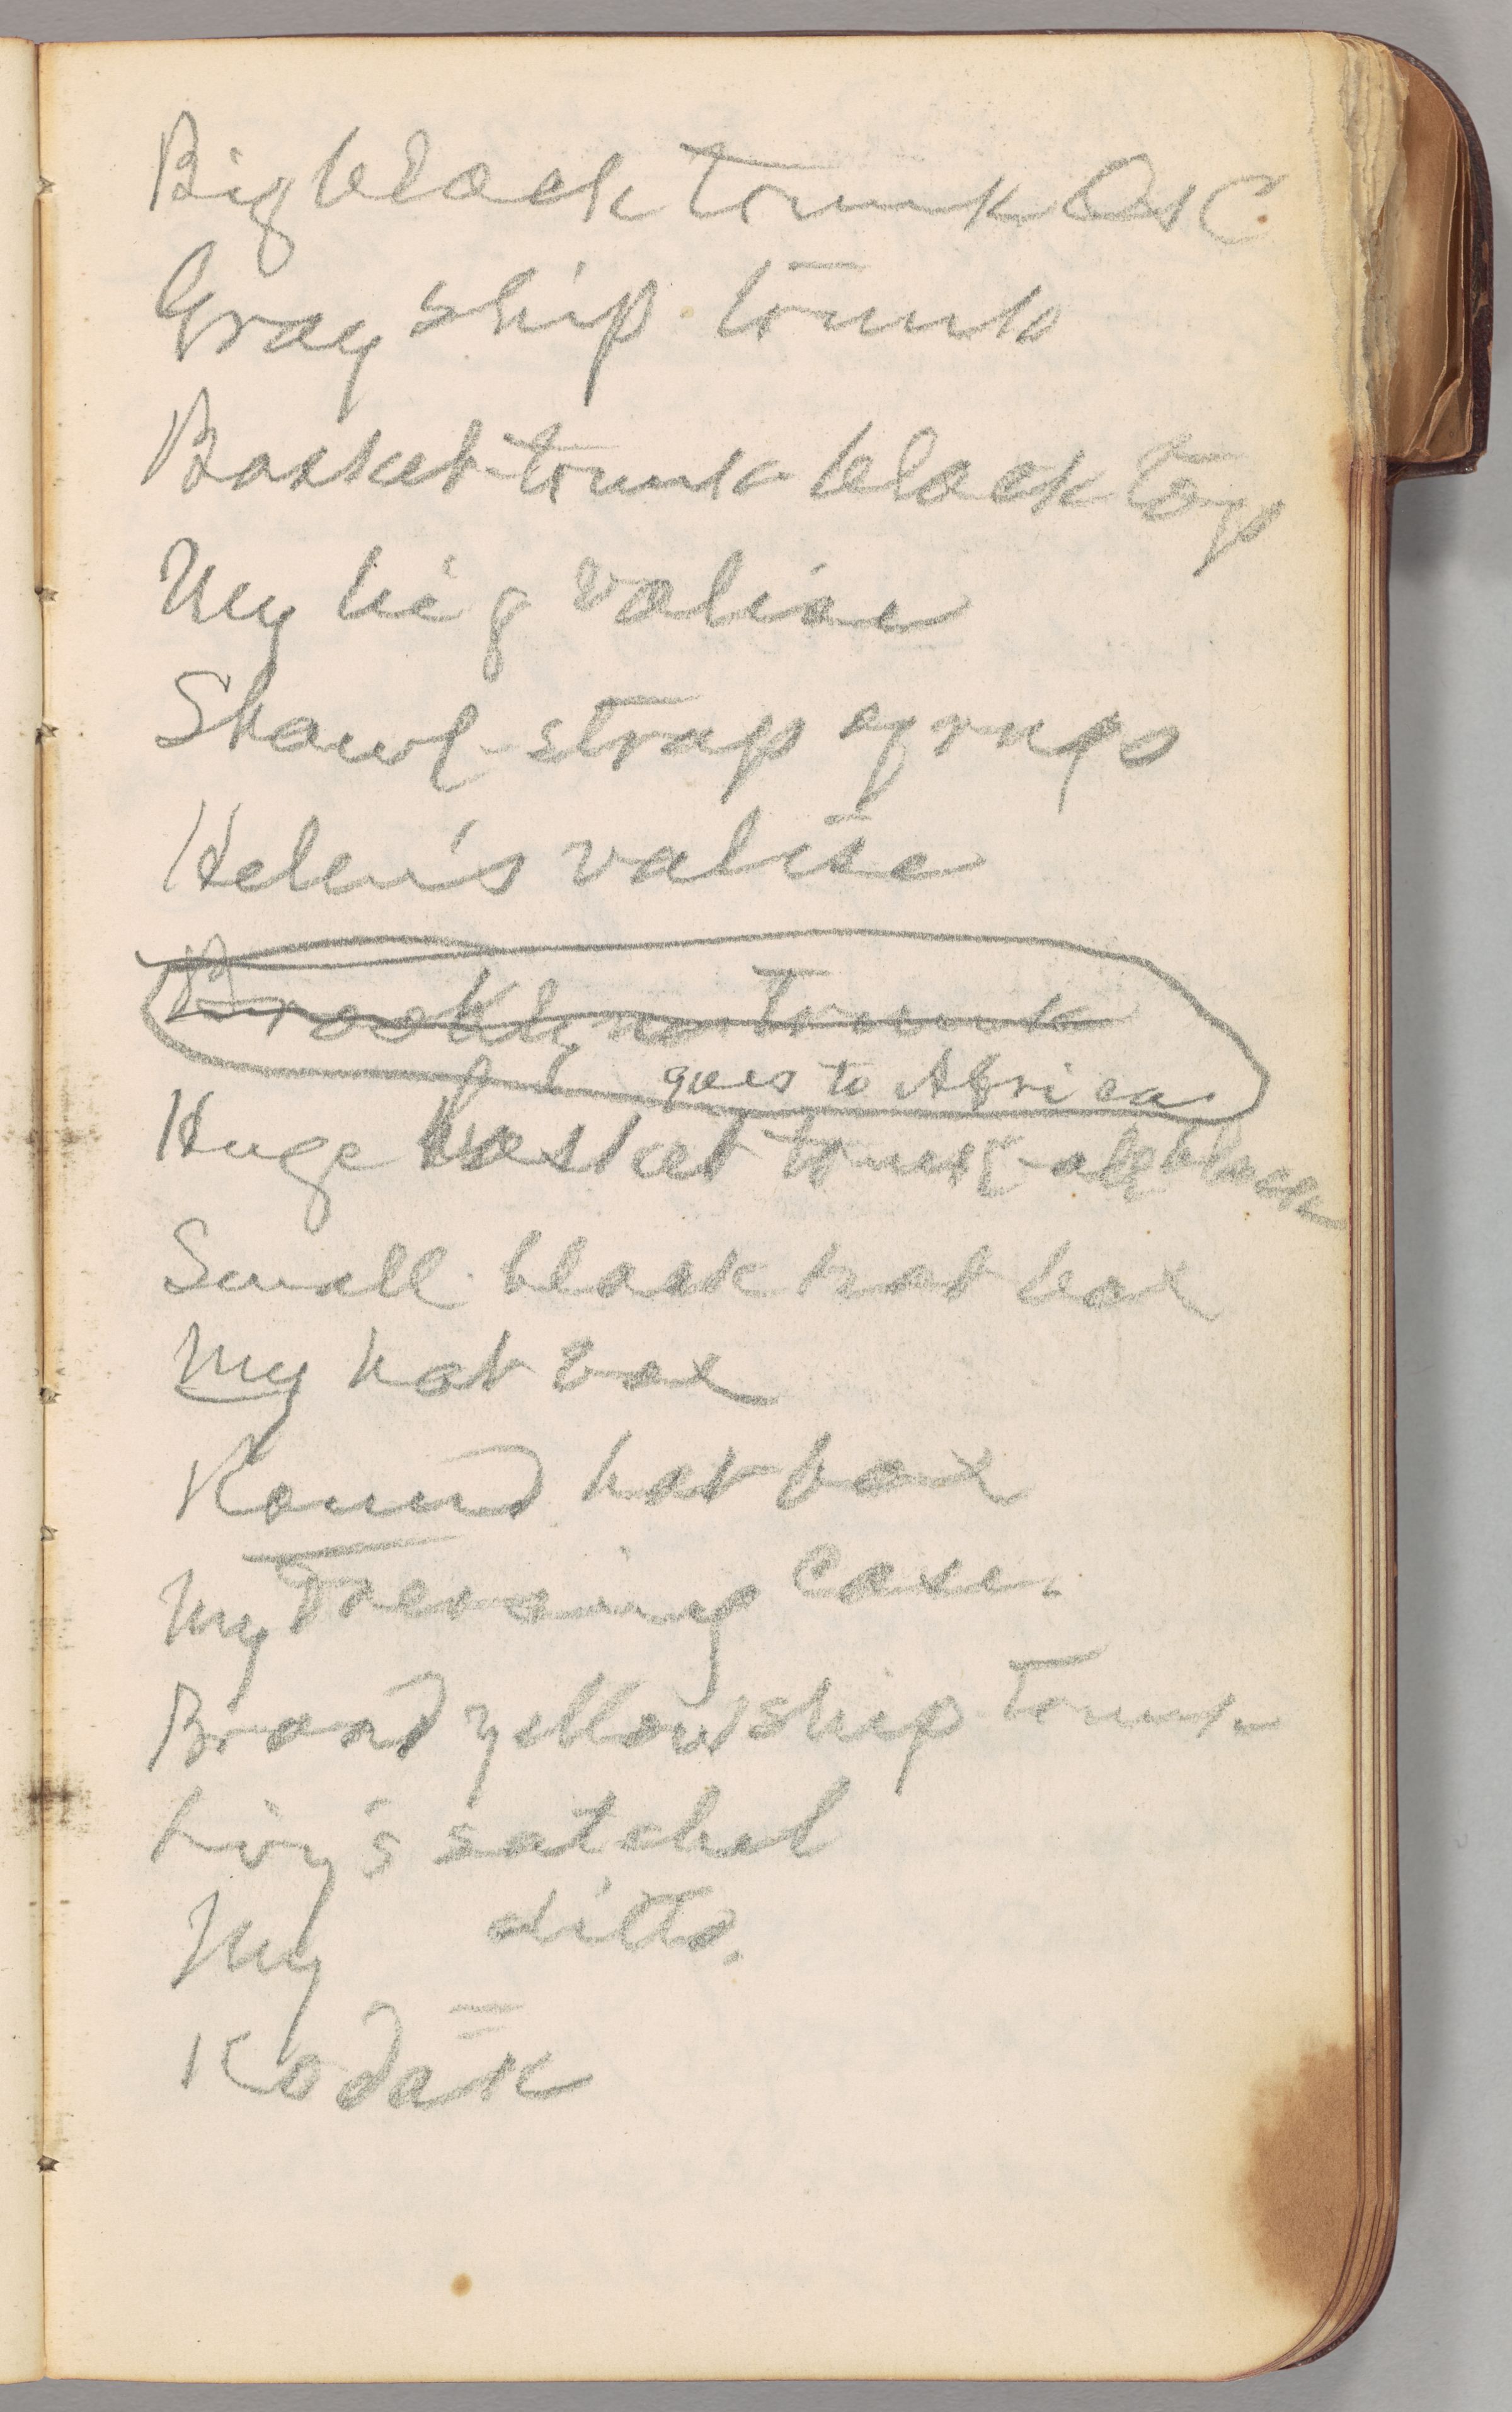 Big black trunk O S C
Gray ship trunk
Basket-trunk black top
My big valise
Shawl-strap of rugs
Helen's valise
Brooklyn trunk
goes to Africa
Huge basket trunk - all black
Small black hat box
My hat box
Round hat box
My Dressing Case.
Broad yellow ship trunk
Livy's satchel
My ditto.
Kodak